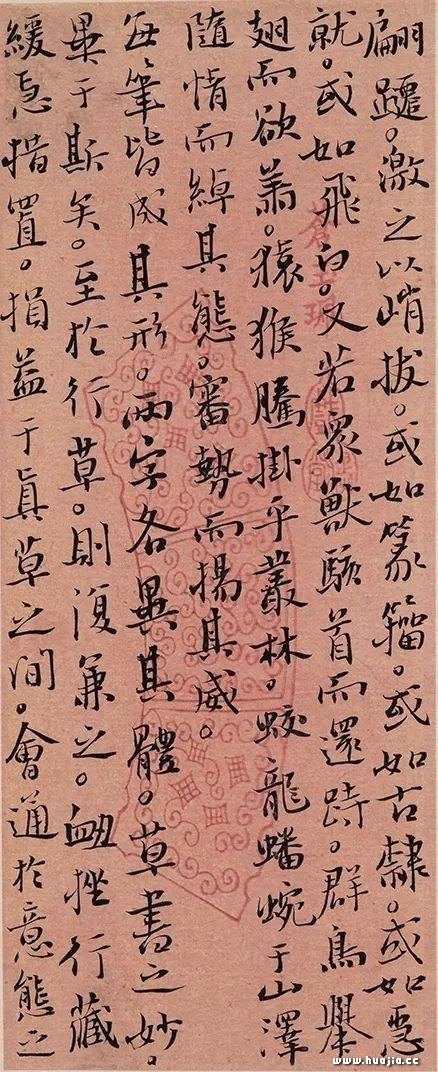 翩躚。激之以峭拔。或如篆籀。或如古隸。或如急
就。或如飛白。又若眾獸駭首而還跱。群鳥舉
翅而欲翥。猿猴騰掛乎叢林。蛟龍蟠蜿于山澤
隨情而綽其態。審勢而揚其威。
每筆皆成其形。兩字各異其體。草書之妙。
畢于斯矣。至於行草。則復兼之。衄挫行藏
緩急措置。損益于眞草之間。會通於意態之
www.huajia.cc